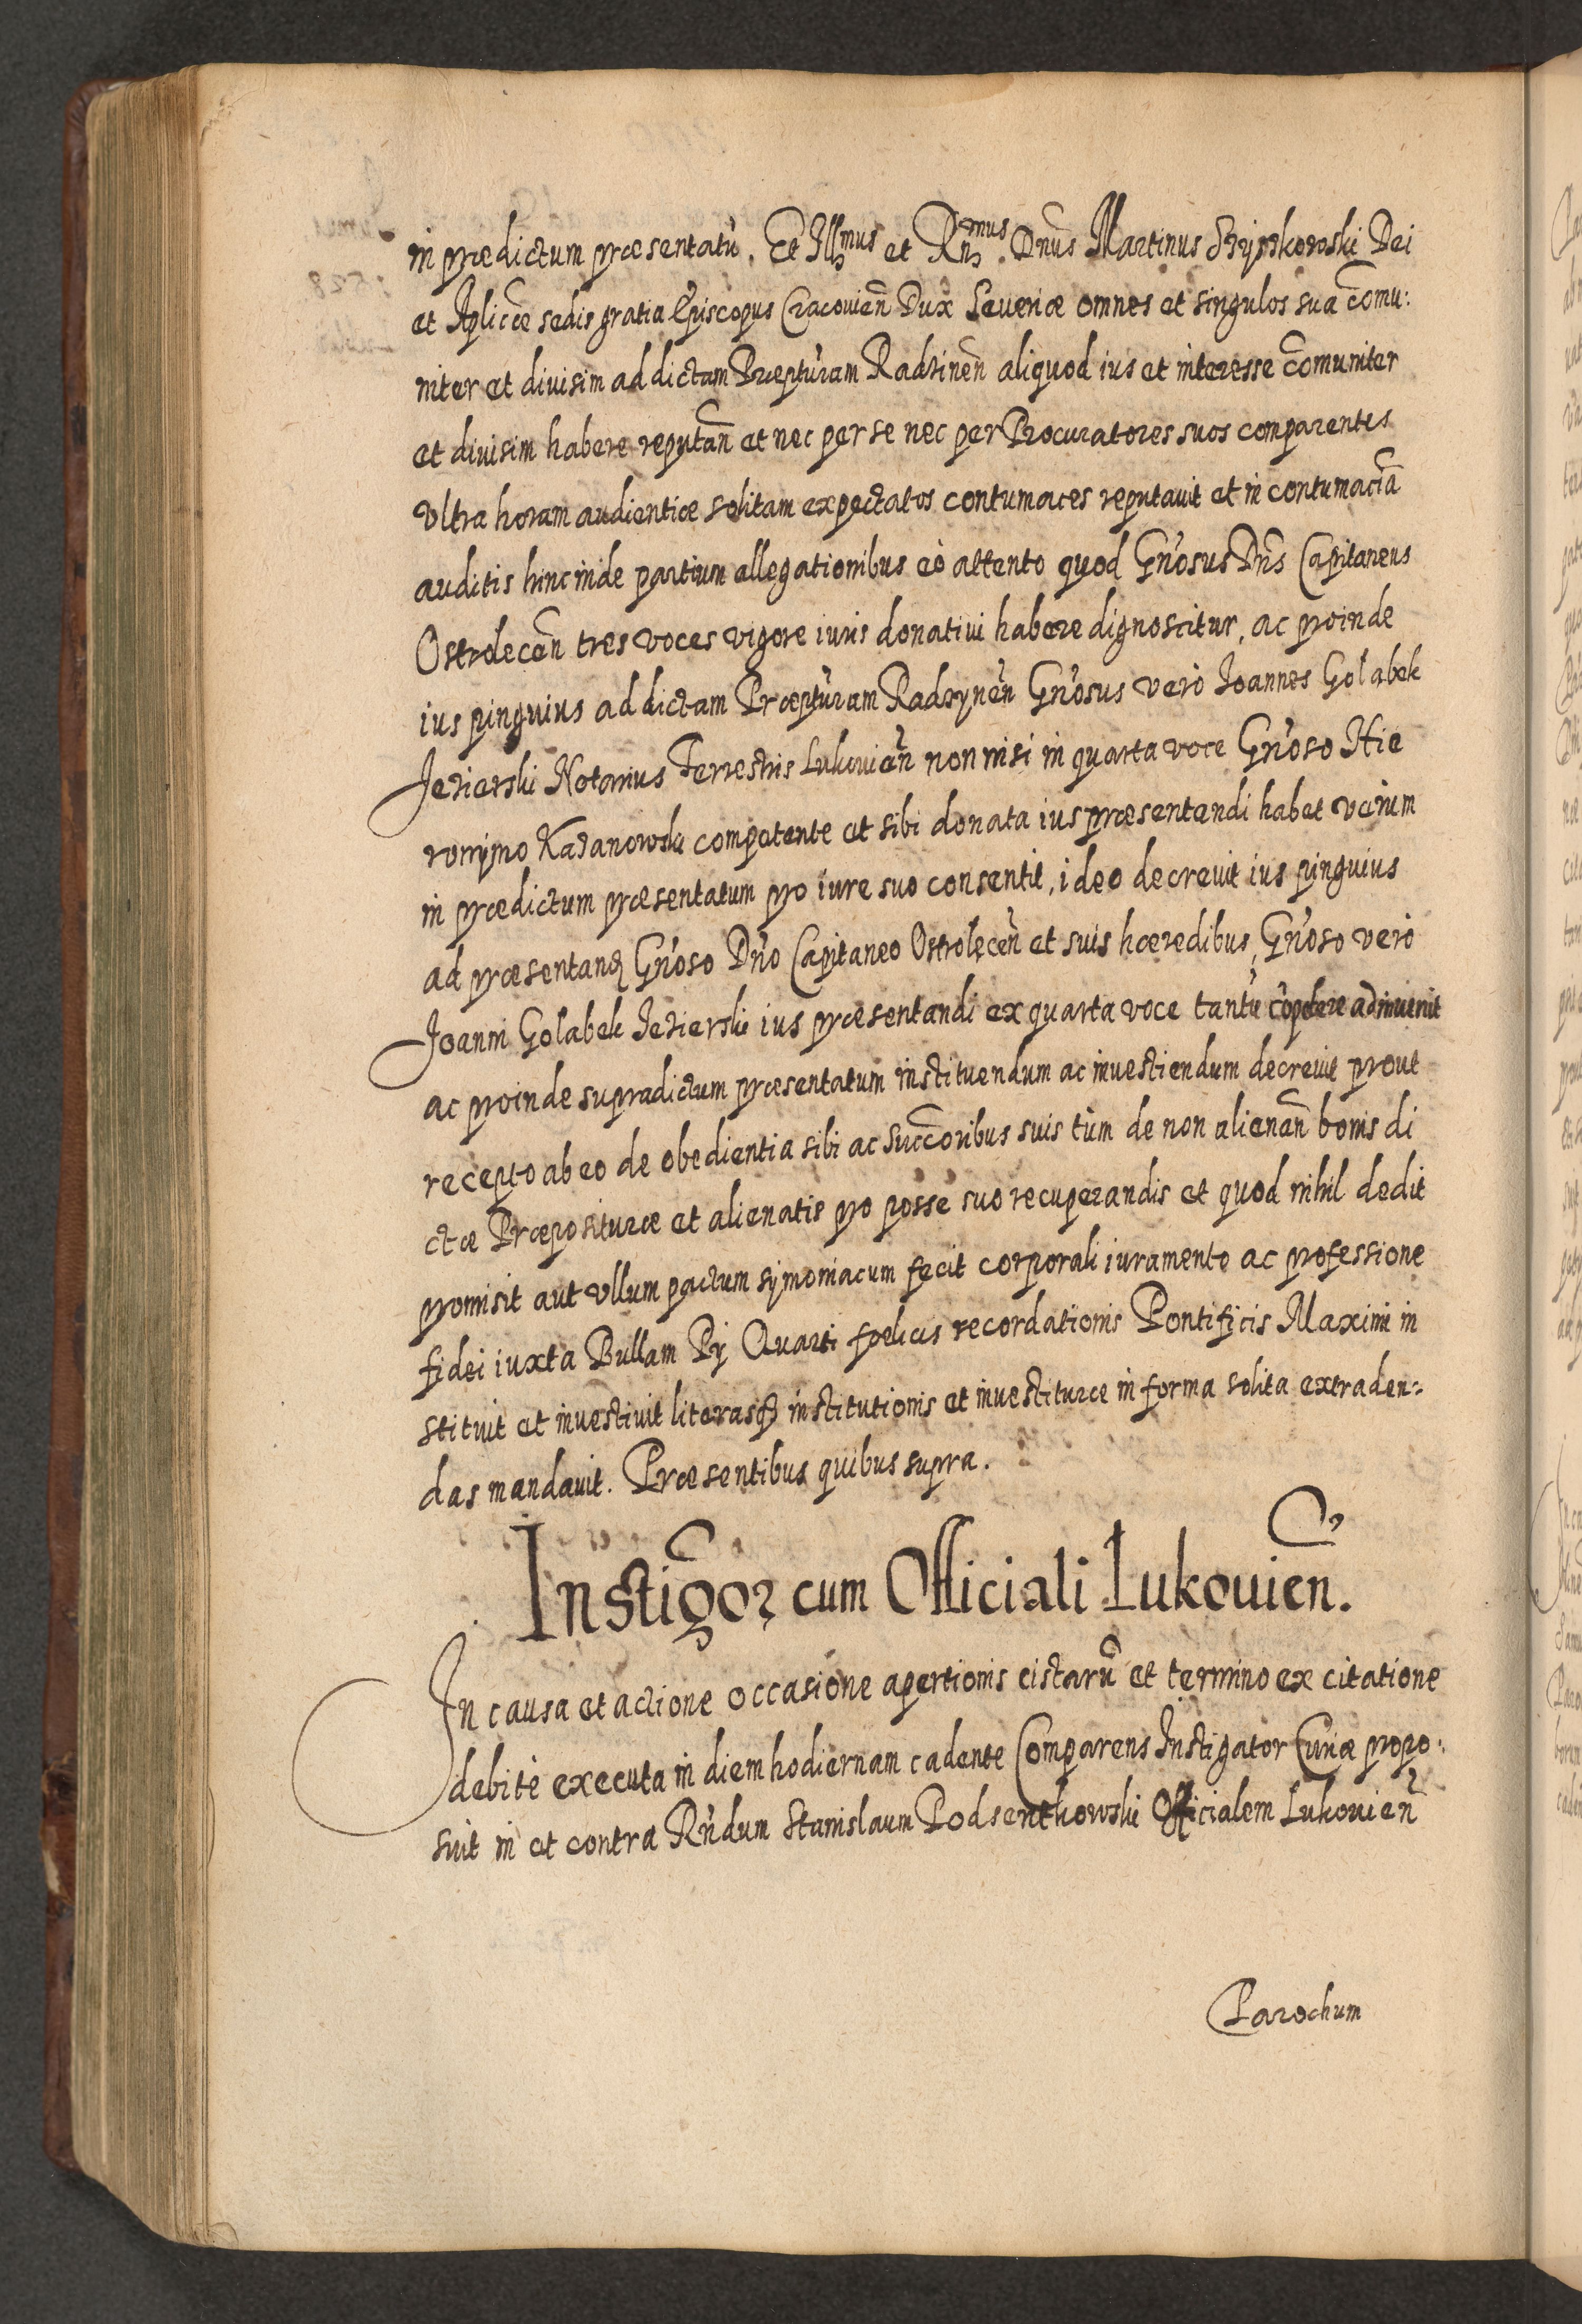 in prædictum præsentatũ. Et Illmus et Rndmus Dnus Martinus Szyszkowski Dei
et Aplicæ sedis gratia Episcopus Cracovien̄ Dux Severiæ omnes et singulos sua com̄u:
niter et divisim ad dictam Præpturam Radzinen̄ aliquod ius et interesse com̄uniter
et divisim habere reputan̄ et nec per se nec per Procuratores suos comparentes
ultra horam audientiæ solitam expectatos contumaces reputavit et in contumaciã
auditis hinc inde partium allegationibus eò attento quod Gn̄osus Dn̄s Capitaneus
Ostrolecen̄ tres voces vigore iuris donativi habere dignoscitur, ac proinde
ius pinguius ad dictam Præpturam Radzynen̄ Gn̄osus verò Joannes Golabek
Jezierski Notarius Terrestris Lukovien̄ non nisi in quarta voce Gn̄oso Hie
ronymo Kazanowski competente et sibi donata ius præsentandi habet verum
in prædictum præsentatum pro iure suo consentit, ideo decrevit ius pinguius
ad præsentand Gn̄oso Dn̄o Capitaneo Ostrolęcen̄ et suis hæredibus, Gn̄oso verò
Joanni Golabek Jezierski ius præsentandi ex quarta voce tantũ cõpetere adinvenit
ac proinde supradictum præsentatum instituendum ac investiendum decrevit prout
recepto ab eo de obedientia sibi ac succ̄oribus suis tùm de non alienan̄ bonis di
ctæ Præposituræ et alienatis pro posse suo recuperandis et quod nihil dedit
promisit aut ullum pactum symoniacum fecit corporali iuramento ac professione
fidei iuxta Bullam Pij Quarti fœlicis recordationis Pontificis Maximi in
stituit et investivit literasq̃ institutionis et investituræ in forma solita extraden:
das mandavit. Præsentibus quibus supra.
Instig̃or cum Officiali Lukovien̄.
In causa et actione occasione apertionis cistarũ et termino ex citatione
debitè executa in diem hodiernam cadente Comparens Instigator Curiæ propo:
suit in et contra Rn̄dum Stanislaum Podsenthowski Officialem Lukovien̄
Parochum